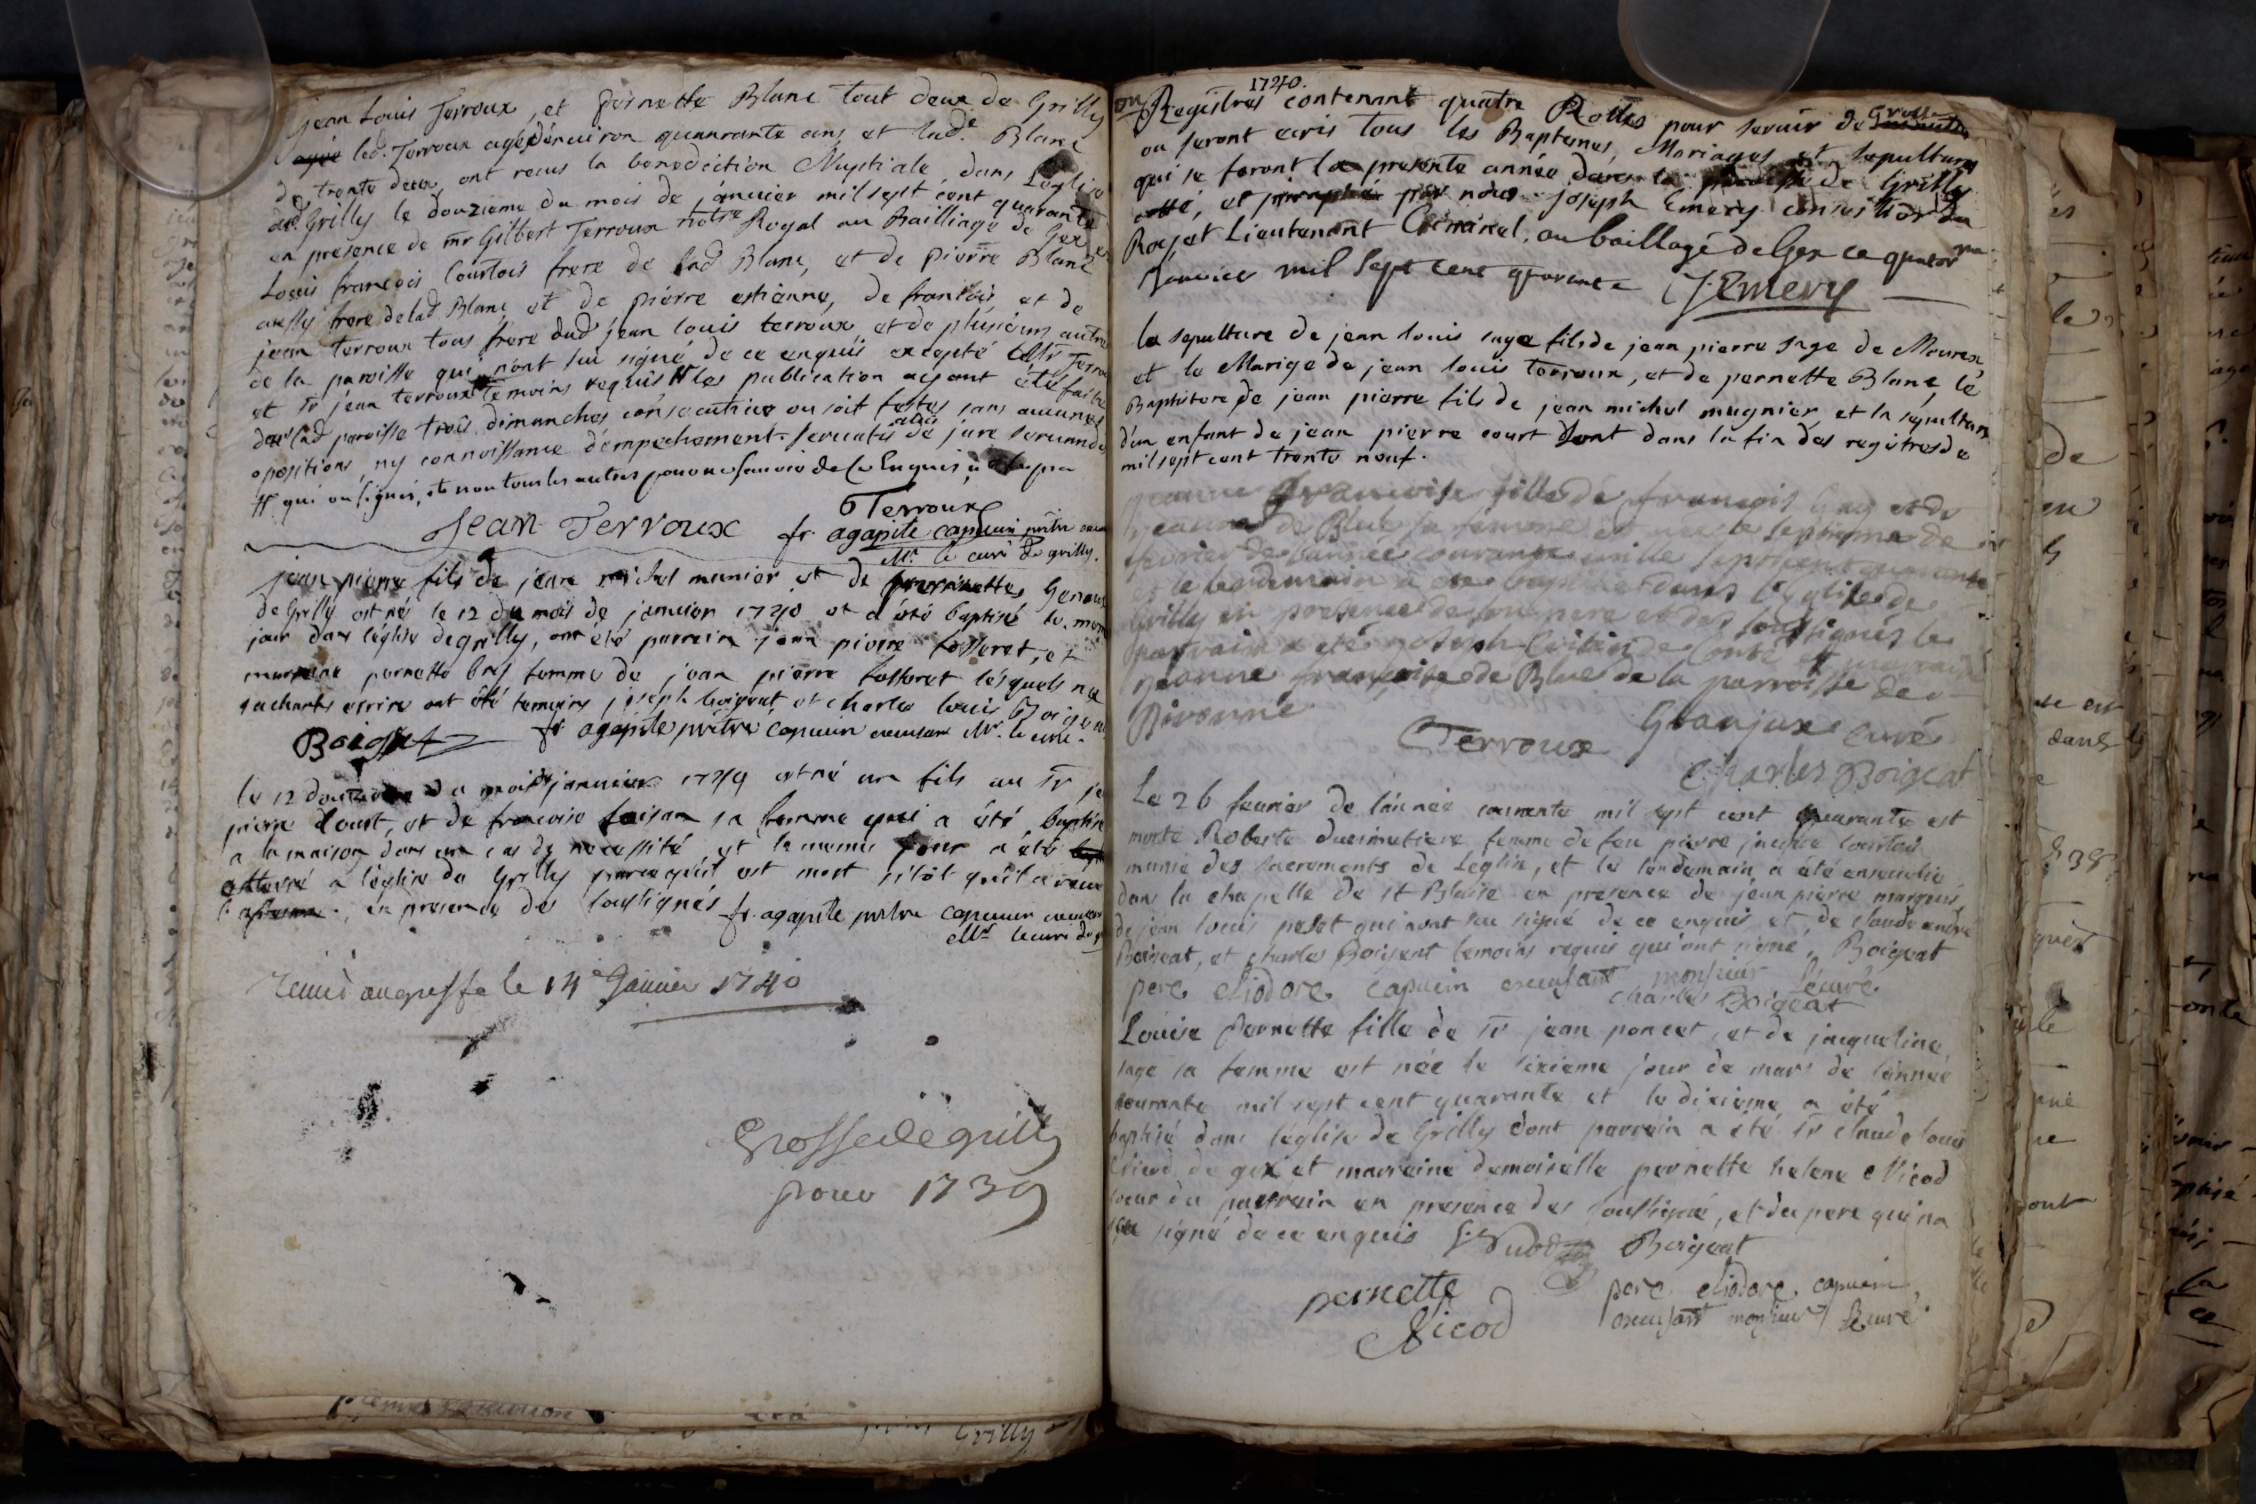 jean Louis Terroux, et pernette Blanc tout deux de Grilly
led. Terroux agé dénuiron quaurante ans et lad.e Blanc
de trente deux, ont recus la benediction Nuptiale, dans Léglise
de Grilly le douzieme du mois de janvier mil sept cent quarante
en présence de mr Gilbert Terroux not.re Royal au Bailliage de Gex
Louis françois Courtois frere de lad Blanc, et de pierre Blanc
aussy frere delad Blanc et de pierre estienne, de françois et de
jean terroux tous frére dud jean louis terroux et de plusieurs autre
de la paroisse qui n'ont sui signé de ce enquis excepté led Sr Terroux
et Sr jean terroux temoins requis # les publication ayant été faite
dans lad paroisse trois dimanches consecutives ou soit festes sans aucunes
opositions ny connoissance d'empechement servatis aliis de jure servandis
# qui on signés, et non tous les autres pour ne sauoir de ce Enquis
Terroux
Jean Terroux fr. agapite capucin prêtre
Mr. le curé de grilly.
jean pierre fils de jean michel munier et de pernette
de Grilly est né le 12 du mois de janvier 1740 et a été baptisé le meme
jour dans léglise de grilly, ont été parrein jean pierre tosseret, et
marreine pernette bref femme de jean pierre tosseret lésquels ne
sachants ecrire ont été temoins joseph boigeat et charles louis Boigeat
Boigeat fr agapite prêtre capucin excusant Mr. le curé.
le 12 douzieme du mois janvier 1740 est né un fils au Sr je
pierre Court, et de francoise sa femme qui a été baptisé
a la maison dans un cas de necessité et le meme jour a été
enterré a léglise de Grilly parcequ'il est mort sitôt qu'il a receu
en presence des soussignés fr. agapite prêtre capucin excusant
Mr le curé de
remis au greffe le 14e Janvier 1740
Grosse de grilly
pour 1739
1740.
Registres contenant quatre Rolles pour servir de Grosse
ou seront ecris tous les Baptemes, Mariages et sepultures
qui se feront la presente année dans la paroisse de Grilly
cotté, et paraphé par nous joseph Emery conseiller du
Roy et Lieutenant Criminel, au baillage de Gex ce quator
Janvier mil sept cent quarante J. Emery
la sepulture de jean louis sage fils de jean pierre sage de Mourex
et le Marige de jean louis terroux, et de pernette Blanc, lé
Baptistere de jean pierre fils de jean michel mugnier et la sepulture
d'un enfant de jean pierre court sont dans la fin des registres de
mil sept cent trente neuf.
jeanne francoise fille de francois et de
jeanne de Blue sa femme est née le septieme de
fevrier de l'année courante mille sept cent quarante
et le lendemain a été baptisée dans l'Eglise de
Grilly en presence de son pere et des soussignés le
parrain a été joseph et marraine
jeanne francoise de Blue de la parroisse de
Divonne
Terroux Granjux curé
Charles Boigeat
Le 26 fevrier de l'année courante mil sept cent quarante est
morte Roberte ducimetiere femme de feu pierre courtois
munie des sacrements de Léglise, et le lendemain a été ensevelie
dans la chapelle de st Blaise en presence de jean pierre marquis
de jean louis pelet qui n'ont seu signé de ce enquis et de claude andré
Boigeat, et charles Boigeat temoins requis qui ont signé, Boigeat
pere eliodore capucin excusant monsieur le curé
charles Boigeat
Louise pernette fille de Sr jean poncet, et de jacqueline
sage sa femme est née le sixieme jour de mars de lánnée
courante mil sept cent quarante et le dixieme a été
baptisé dans léglise de Grilly dont parrein a été Sr claude louis
Nicod de gex et marreine demoiselle pernette helene Nicod
soeur du parrein en presence des soussigné, et du pere qui na
sçu signé de ce enquis Boigeat
pernette
Nicod
pere eliodore capucin
excusant monsieur le curé